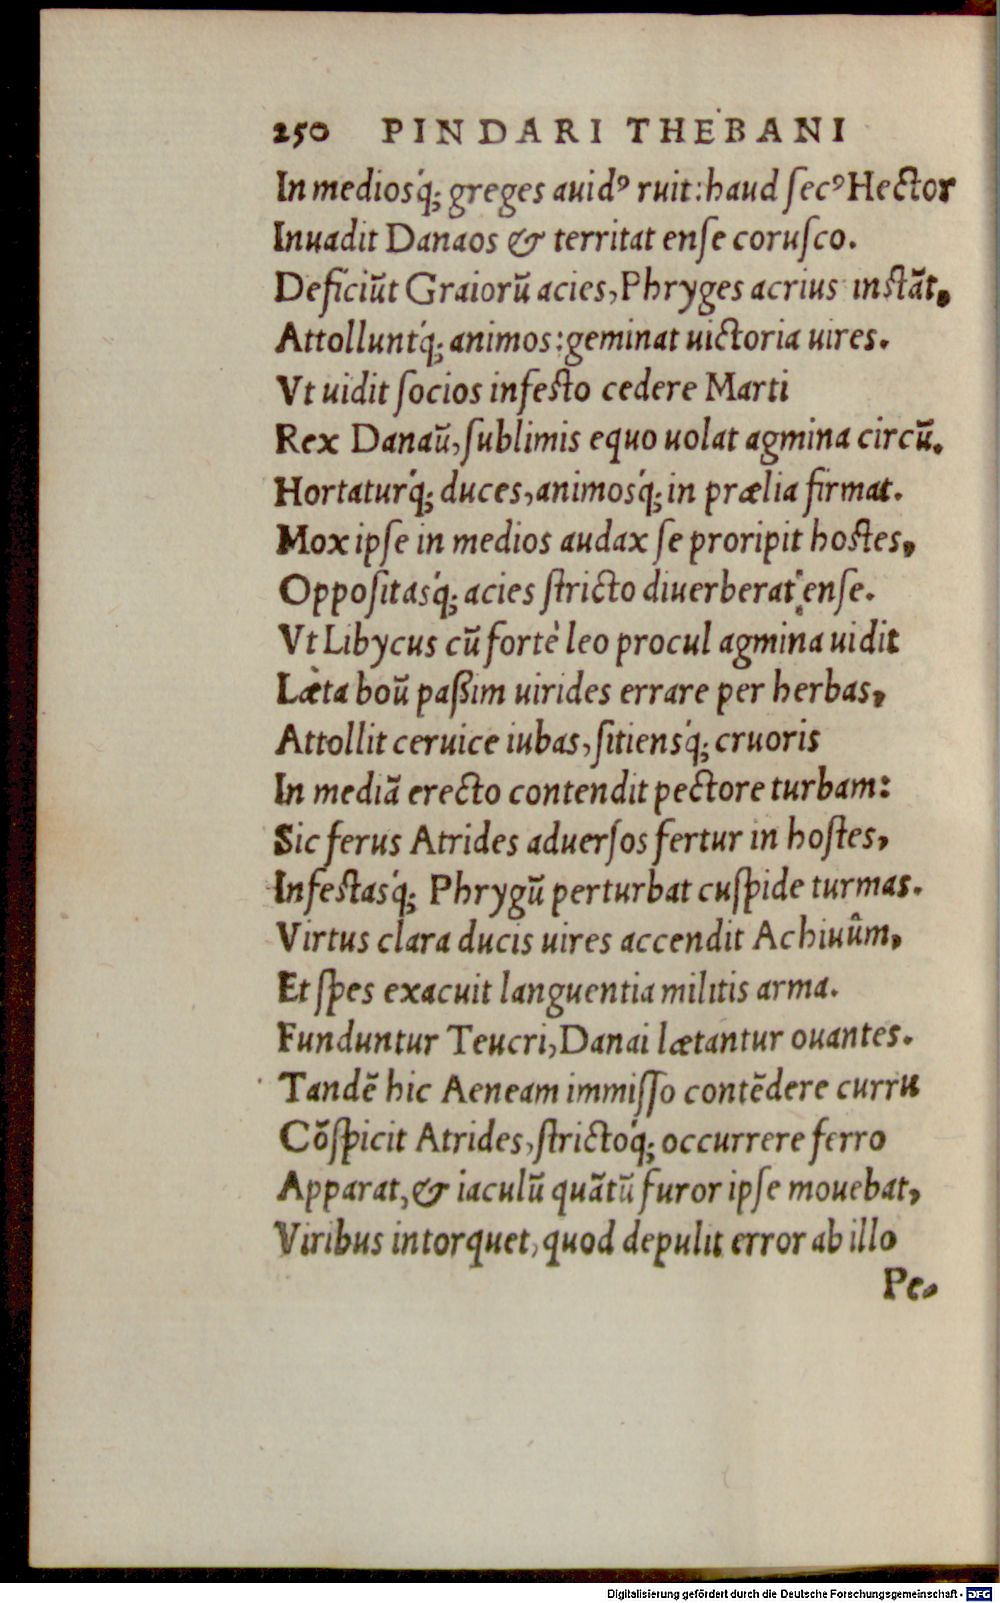 250 PINDARI THEBANI
In mediosq́; greges auidꝰ ruit: haud ſecꝰ Hector
Inuadit Danaos & territat enſe coruſco.
Deficiūt Graiorū acies, Phryges acrius inſtāt,
Attolluntq́; animos: geminat uictoria uires.
Vt uidit ſocios infeſto cedere Marti
Rex Danaū, ſublimis equo uolat agmina circū.
Hortaturq́; duces, animosq́; in prælia firmat.
Mox ipſe in medios audax ſe proripit hoſtes,
Oppoſitasq́; acies ſtricto diuerberat enſe.
Vt Libycus cū fortè leo procul agmina uidit
Læta boū paßim uirides errare per herbas,
Attollit ceruice iubas, ſitiensq́; cruoris
In mediā erecto contendit pectore turbam:
Sic ferus Atrides aduerſos fertur in hoſtes,
Infeſtasq́; Phrygū perturbat cuſpide turmas.
Virtus clara ducis uires accendit Achiuûm,
Et ſpes exacuit languentia militis arma.
Funduntur Teucri, Danai lætantur ouantes.
Tandē hic Aeneam immiſſo contēdere curru
Cōſpicit Atrides, ſtrictoq́; occurrere ferro
Apparat, & iaculū quātū furor ipſe mouebat,
Viribus intorquet, quod depulit error ab illo
Pe-
Digitalisierung gefördert durch die Deutsche Forschungsgemeinschaft - DFG